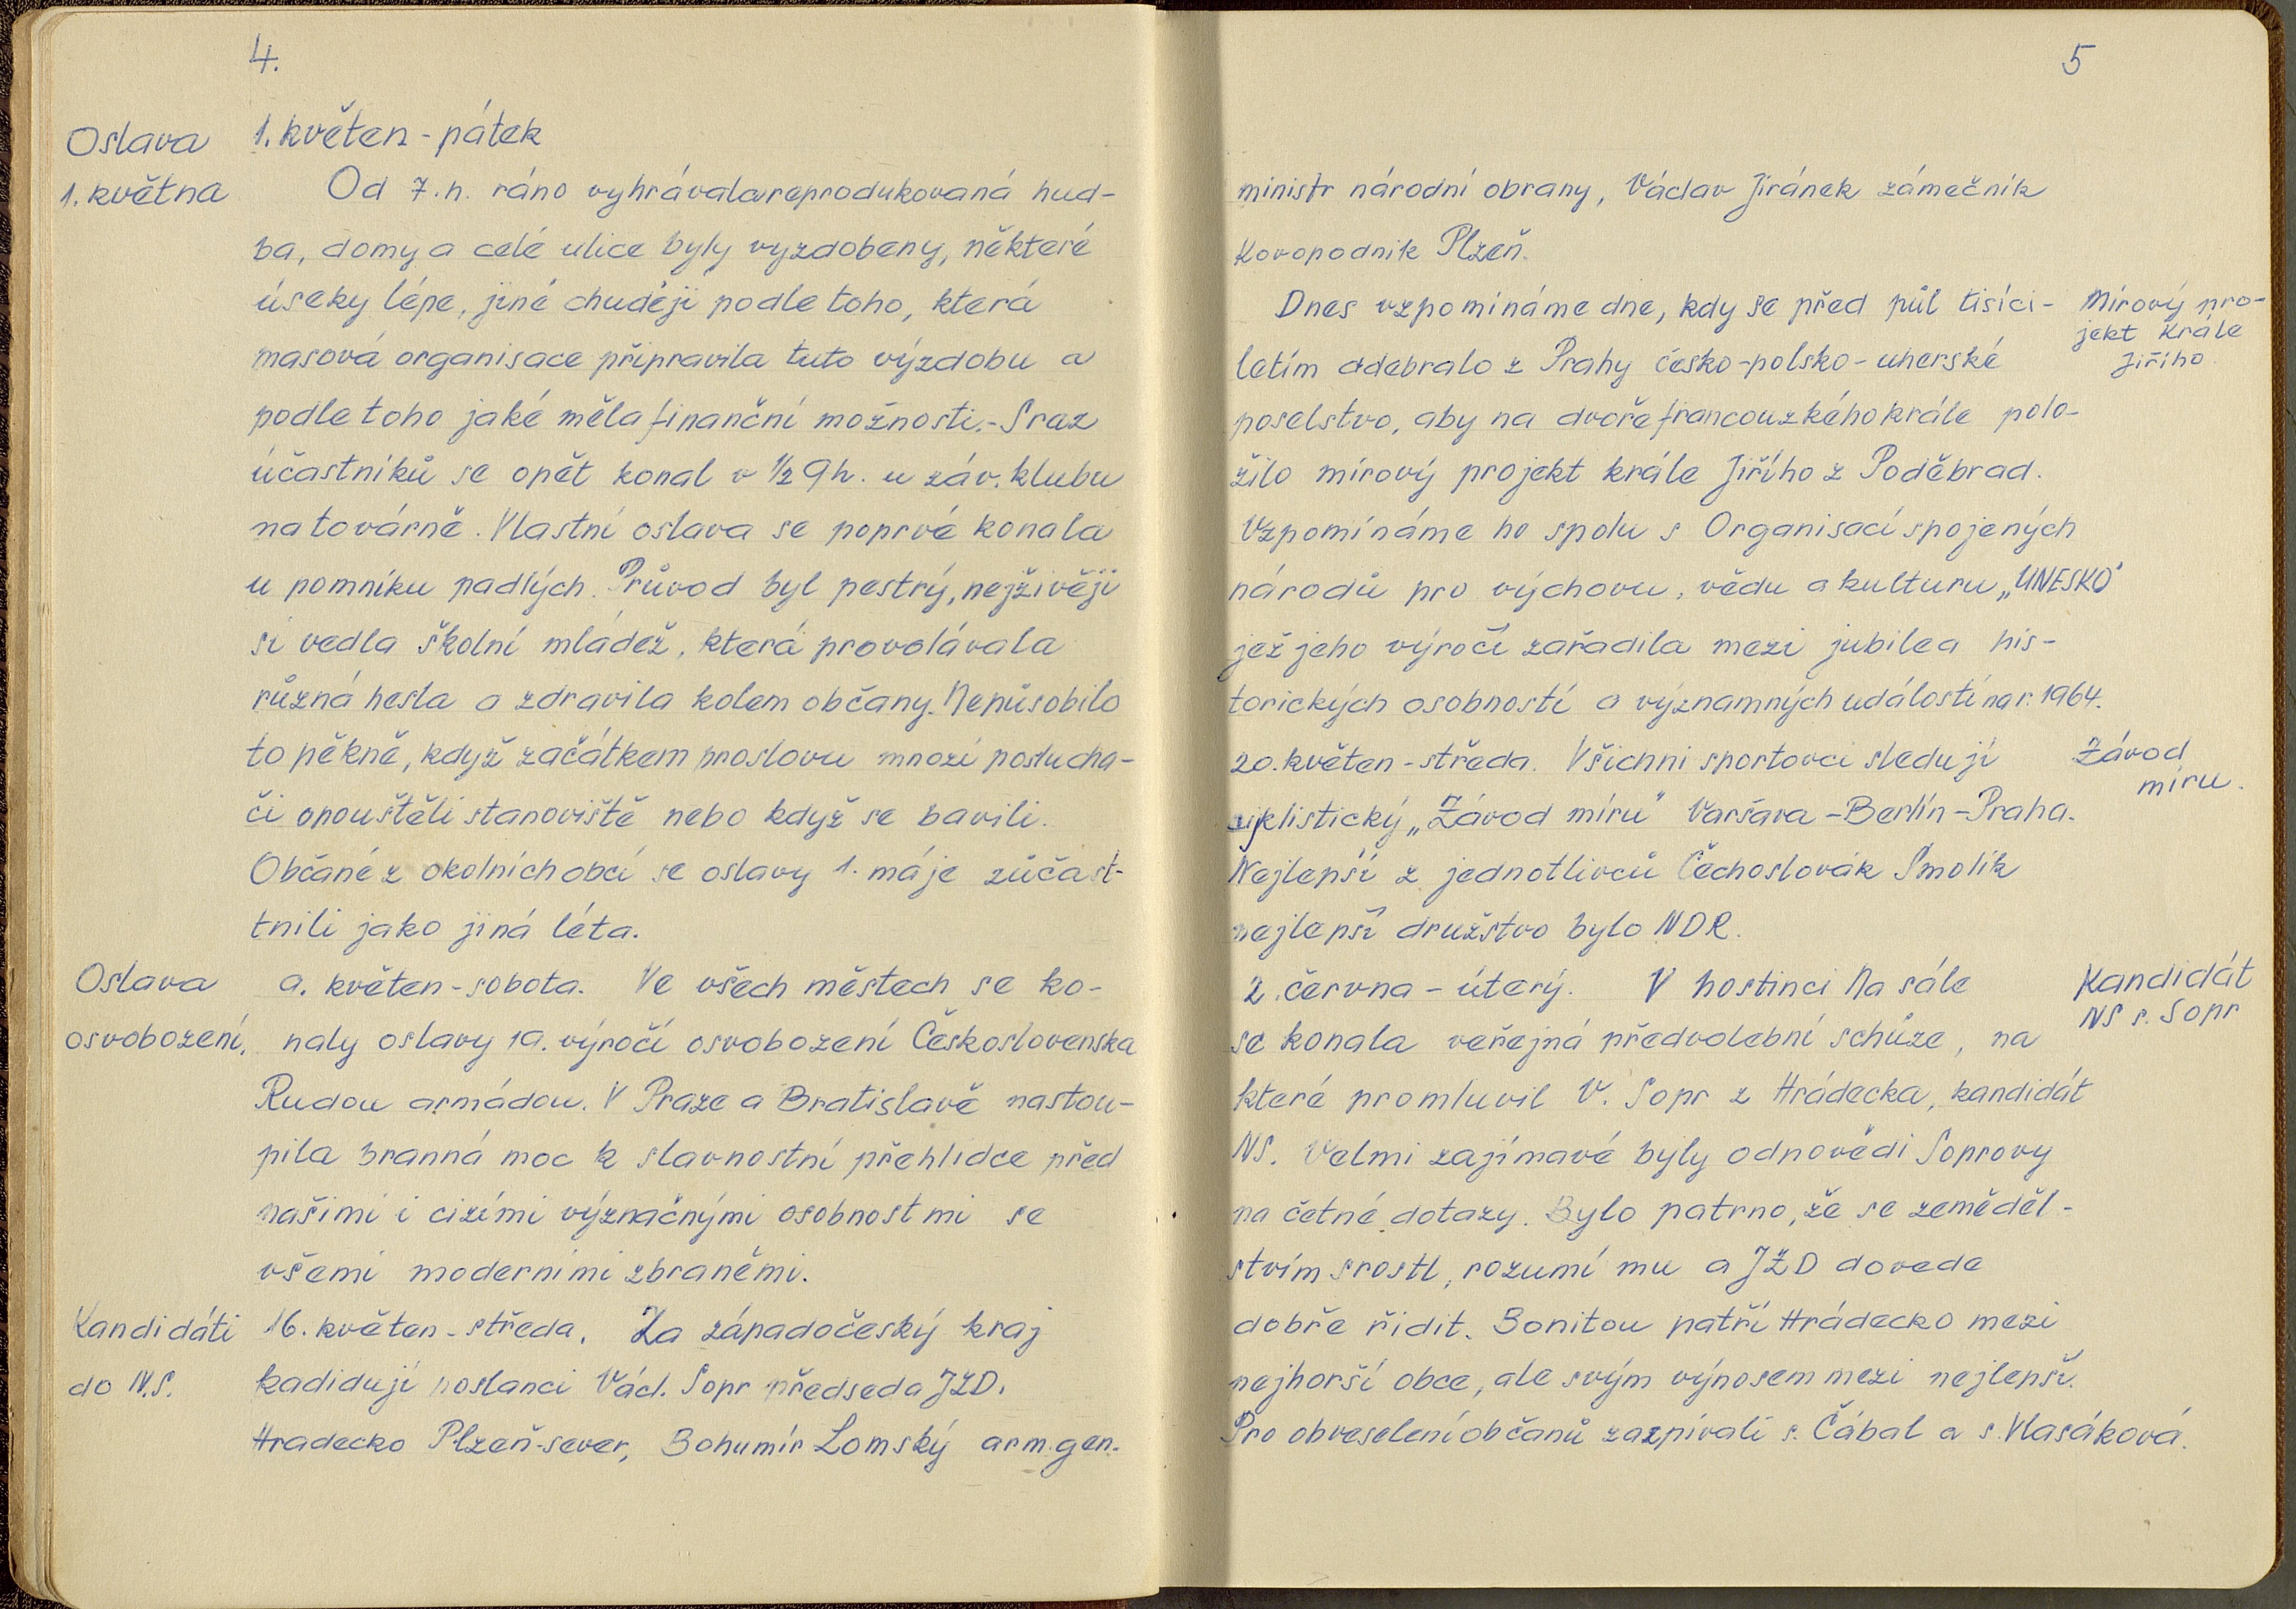 4.
Oslava
1. května
1. květen - pátek
Od 7. h. ráno vyhrávala reprodukovaná hud-
ba, domy a celé ulice byly vyzdobeny, některé
úseky lépe, jiné chuději podle toho, která
masová organisace připravila tuto výzdobu a
podle toho jaké měla finanční možnosti.- Sraz
účastníků se opět konal v 1/2 9 h. u záv. klubu
na továrně. Vlastní oslava se poprvé konala
u pomníku padlých. Průvod byl pestrý, nejživěji
si vedla školní mládež, která provolávala
různá hesla a zdravila kolem občany. Nepůsobilo
to pěkně, když začátkem proslovu mnozí poslucha-
či opouštěli stanoviště nebo když se bavili.
Občané z okolních obcí se oslavy 1. máje zůčast-
tnili jako jiná léta.
Oslava
osvobození.
9. květen - sobota. Ve všech městech se ko-
naly oslavy 19. výročí osvobození Československa
Rudou armádou. V Praze a Bratislavě nastou-
pila branná moc k slavnostní přehlídce před
našimi i cizími význačnými osobnostmi se
všemi moderními zbraněmi.
Kandidáti
do N.S.
16. květen - středa. Za západočeský kraj
kadidují poslanci Václ. Sopr předseda JZD.
Hradecko Plzeň-sever, Bohumír Lomský arm. gen.
5
ministr národní obrany, Václav Jiránek zámečník
Kovopodnik Plzeň.
Mírový pro-
jekt Krále
Jiřího
Dnes vzpomínáme dne, kdy se před půl tisíci-
letím odebralo z Prahy česko-polsko-uherské
poselstvo, aby na dvoře francouzkého krále polo-
žilo mírový projekt krále Jiřího z Poděbrad.
Vzpomínáme ho spolu s Organisací spojených
národů pro výchovu, vědu a kulturu „UNESKO"
jež jeho výročí zařadila mezi jubilea his-
torických osobností a významných událostí na r. 1964.
Závod
míru.
20. květen - středa. Všichni sportovci sledují
cyklistický „Závod míru" Varšava - Berlín - Praha.
Nejlepší z jednotlivců Čechoslovák Smolík
nejlepší družstvo bylo NDR.
Kandidát
NS s. Sopr
2. června - úterý. V hostinci Na sále
se konala veřejná předvolební schůze, na
které promluvil V. Sopr z Hrádecka, kandidát
NS. Velmi zajímavé byly odpovědi Soprovy
na četné dotazy. Bylo patrno, že se zeměděl-
stvím srostl, rozumí mu a JZD dovede
dobře řídit. Bonitou patří Hrádecko mezi
nejhorší obce, ale svým výnosem mezi nejlepší.
Pro obveselení občanů zazpívali s. Čábal a s. Vlasáková.